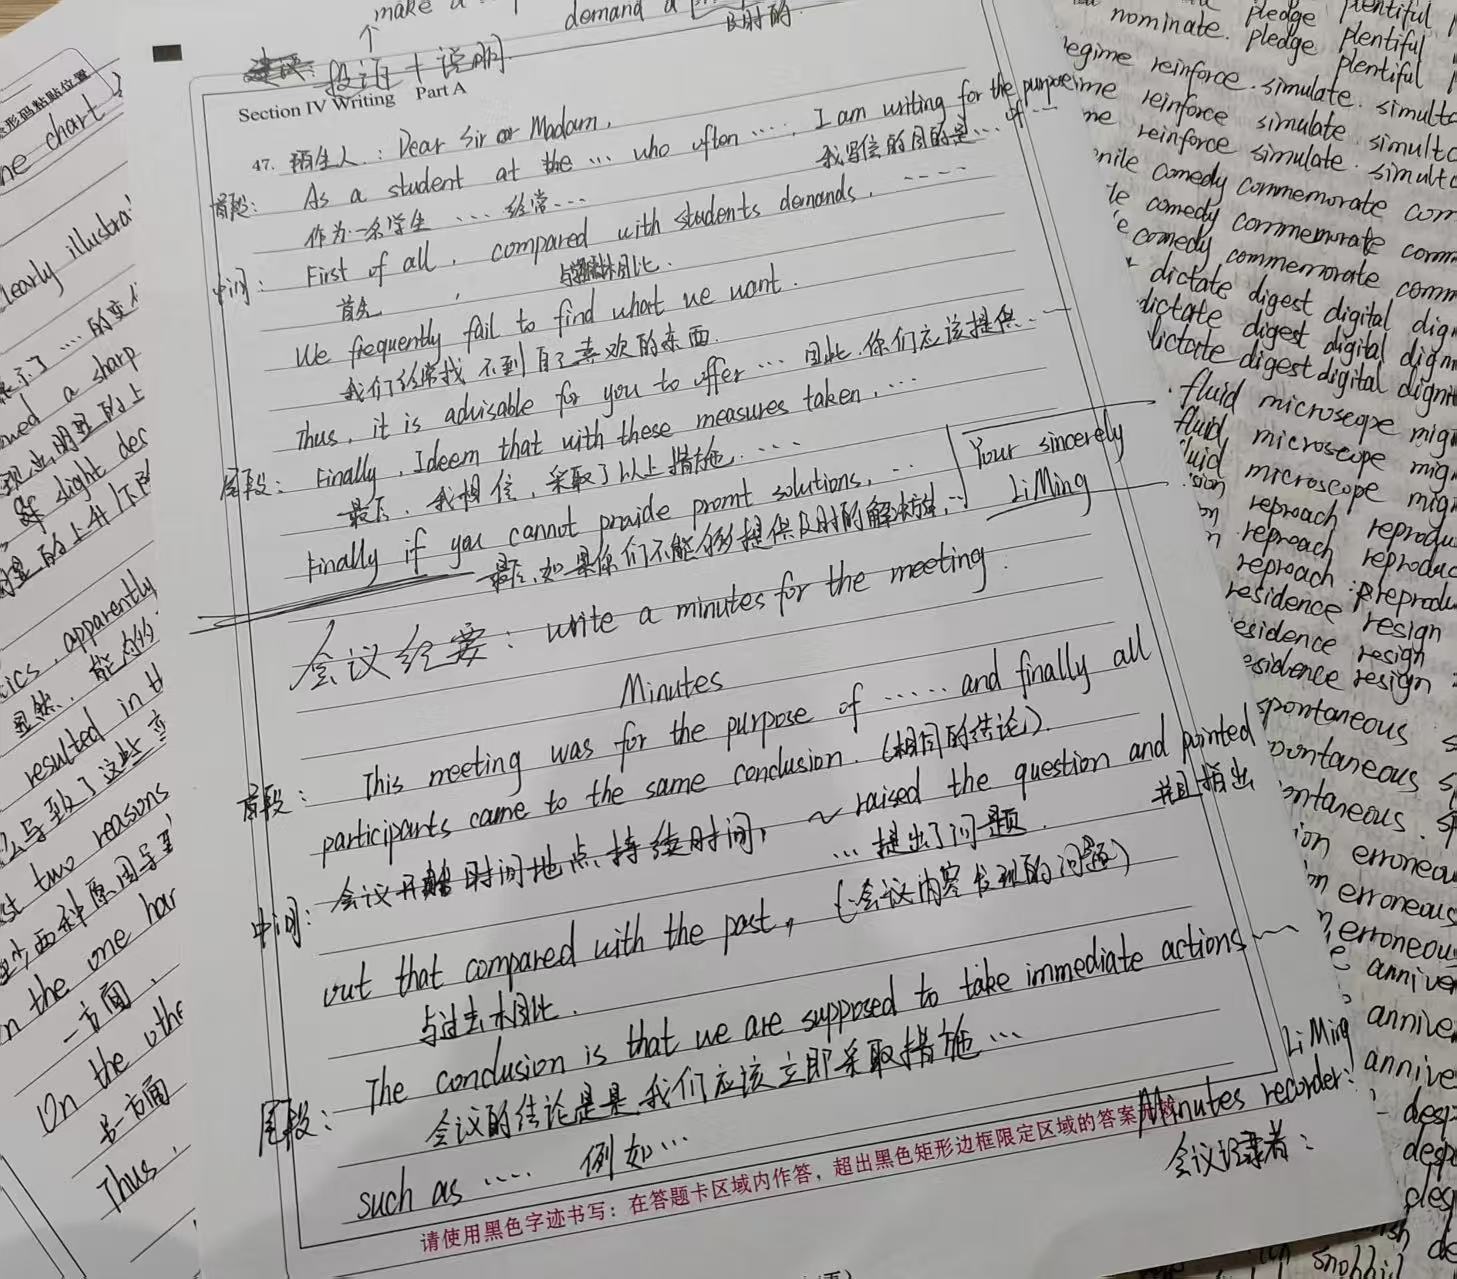 make a
demand a
及时的
投诉+说明
Section IV Writing Part A
47. 陌生人: Dear Sir or Madam,
首段: As a student at the ... who often ...., I am writing for the purpose of ...
作为一名学生 ... 经常... 我写信的目的是...
中间: First of all, compared with students demands, .....
首先, 与 相比.
We frequently fail to find what we want.
我们经常找不到自己喜欢的东西.
Thus, it is advisable for you to offer ... 因此,你们应该提供...
尾段: Finally, I deem that with these measures taken, ...
最后、我相信,采取了以上措施, ...
Finally if you cannot provide promt solutions, ...
最后,如果你们不能够提供及时的解决
Your sincerely
Li Ming
会议纪要: write a minutes for the meeting.
Minutes
首段: This meeting was for the purpose of ...... and finally all
participants came to the same conclusion. (相同的结论).
会议开始时间地点、持续时间,
中间: ~ raised the question and pointed
... 提出了问题. 指出
out that compared with the past, (会议内容发现的问题)
与过去相比.
尾段: The conclusion is that we are supposed to take immediate actions
会议的结论是是,我们应该立即采取措施...
such as ..... 例如...
Li Ming
Minutes recorder:
会议记录者:
请使用黑色字迹书写:在答题卡区域内作答,超出黑色矩形边框限定区域的答案
形码粘贴位置
ne chart
learly illustra
.... 的变
a sharp
slight dec
apparently
显然
resulted in
导致了这些
two reasons
两种原因导
n the one har
一方面,
On the othe
另一方面
Thus,
pledge plentiful
nominate. pledge plentiful
pledge plentiful
regime reinforce. simulate. simulta
reinforce simulate simulta
reinforce simulate. simulta
comedy commemorate com
comedy commemorate comm
comedy commemorate comm
dictate digest digital dign
dictate digest digital dign
dictate digest digital dignit
fluid microscope mig
fluid microscope mig
fluid microscope mig
reproach reprodu
reproach reproduc
reproach reprodu
residence resign
residence resign
residence resign
spontaneous
spontaneous
spontaneous
erroneou
erroneous
erroneou
anniver
annive
annive
desp
desp
desp
snobbi